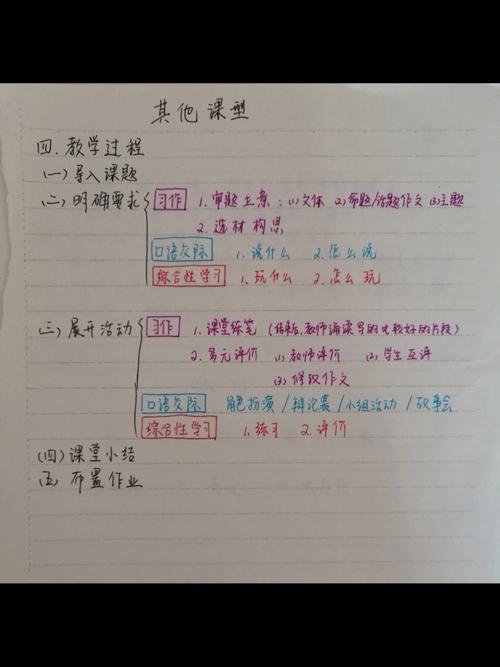 其他课型
四.教学过程
(一)导入课题
(二)明确要求 习作 1.审题立意:(1)文体 (2)命题/话题作文 (3)主题
2.选材构思
口语交际 1.说什么 2.怎么说
综合性学习 1.玩什么 2.怎么玩
(三)展开活动 习作 1.课堂练笔(结束后,教师诵读写的比较好的片段)
2.多元评价 (1)教师评价 (2)学生互评
(3)修改作文
口语交际 角色扮演/辩论赛/小组活动/故事会
综合性学习 1.练习 2.评价
(四)课堂小结
(五)布置作业